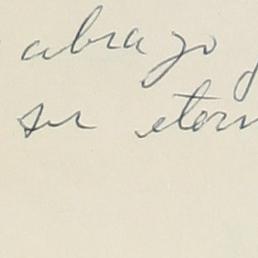 abrazo
su etern